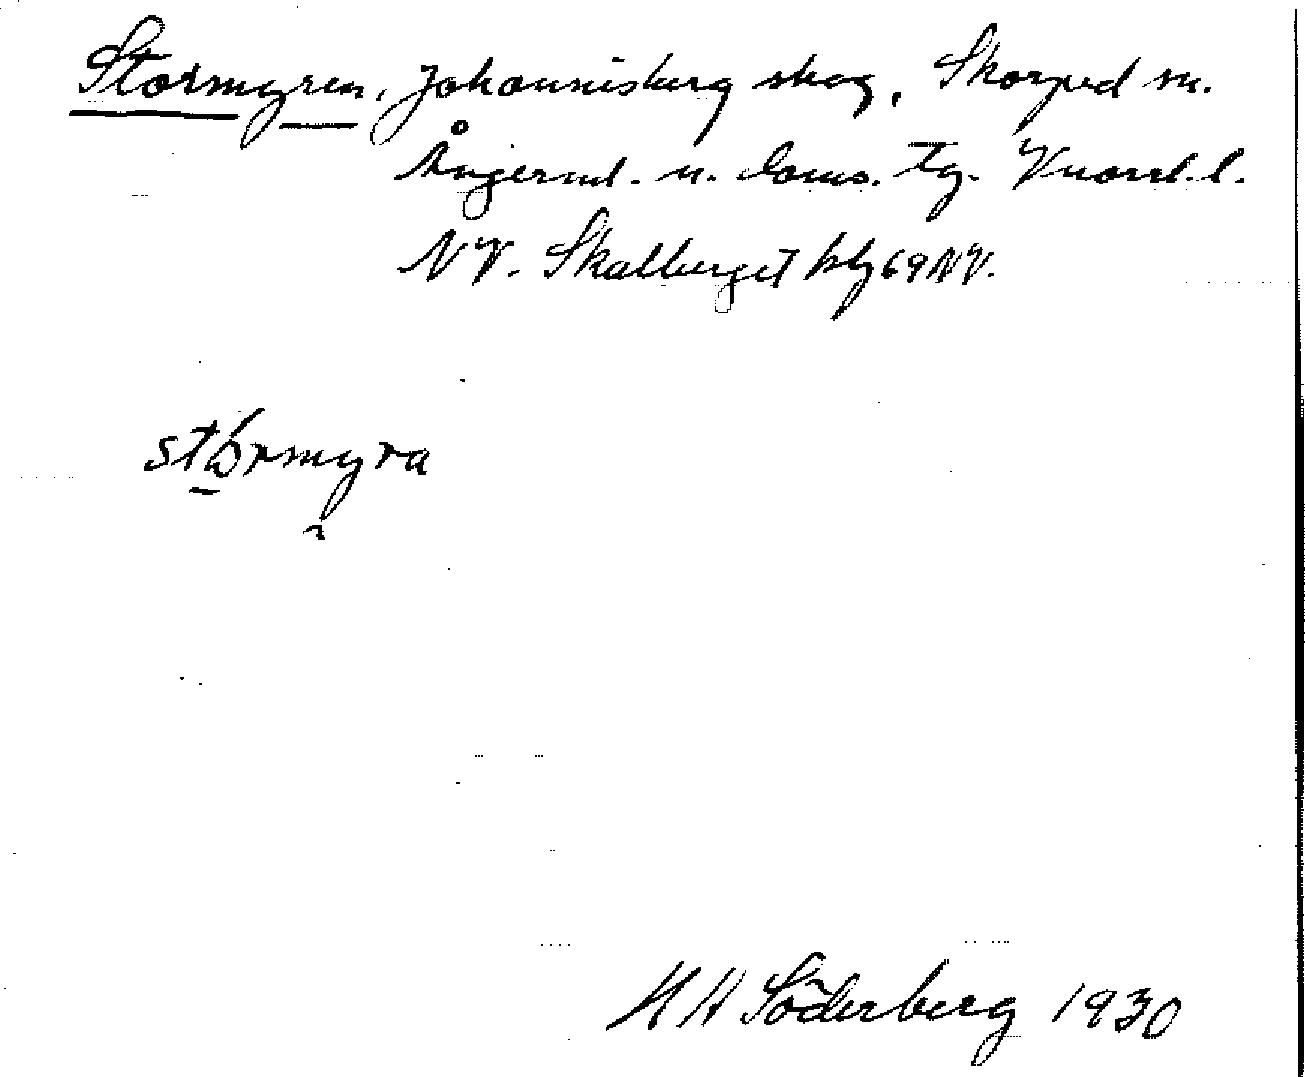 Stormyren, Johannisberg skog, Skorped sn.
Ångerml. n. doms. tg. V
NV. Skalberget kbl 69 NV.
störmyra
H H Söderberg 1930